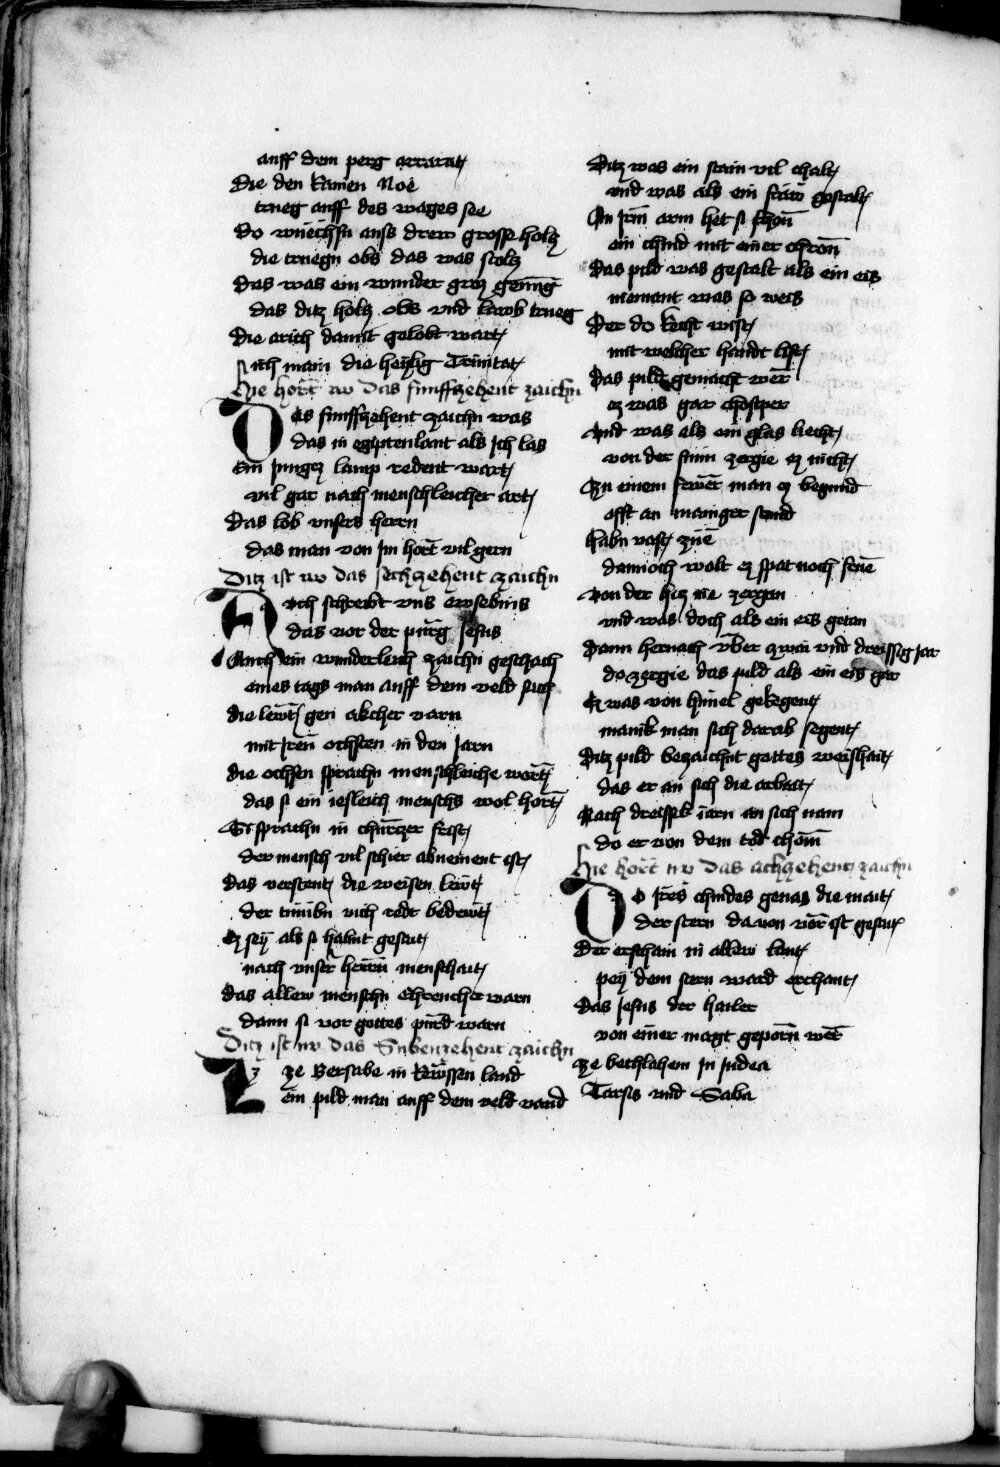 auff dem perg ararat
Die den kamen Noe
trueg auff des wages see
do wuechsn auss drew grosse holtz
die truegn obs das was stolz
Das was ein wunder groz genug
das ditz holtz obs vnd laub trueg
Die arich damit gelobt wart
sich main die heylig Trinitat
Hie hort nv das funffzehent zaichn
Das funffzehent zaichn was
das in egiptenlant als ich las
Ein jungez lamp redent wart
vil gar nach menschleicher art
Das lob vnsers herrn
das man von im hort vil gern
Ditz ist nv das sechzehent zaichn
Avch schreibt vns ewsebius
das vor der purg Jesus
Auch ein wunderleich zaichn geschach
eines tags man auff dem veld sach
die lewt gen akcher varn
mit Iren ochssen in den Jarn
die ochsen sprachn menschleiche wort
das si ein iesleich mensch wol hort
Si sprachn in churtzer frist
der mensch vil schier abnement ist
das verstent die weisen lewt
der tumbn vich redt bedewt
Ez sey als si habnt gesait
nach vnser herrn menschait
das allew menschn Ehreucher warn
dann si vor gottes purd warn
Ditz ist nv das Sibenzehent zaichn
Ez ze Bersabe in krewssen land
ein pild man auff dem veld vand
Ditz was ein stain vil chalt
vnd was als ein fraw gestalt
An irm arm het si schon
ein chind mit einer chron
das pild was gestalt als ein eis
niemant was so weis
Der do recht wist
mit welcher handt list
das pild gemacht wer
ez was gar chostper
Vnd was als ein glas liecht
von der sunn zergie ez nicht
Zu einem fewer man ez begund
offt an mainger stund
habn vast zue
dannoch wolt ez spat noch frue
von der hitz nie zergan
vnd was doch als ein eis getan
Dann hernach vber zwai vnd dreissig jar
do zergie das pild als ein eis gar
Ez was von himel gekegent
manik man sich darab segent
Ditz pild bezaichnt gottes weishait
das er an sich die arbait
Nach dreissk iarn an sich nam
do er von dem tod chom
Hie hort nv das achzehent zaichn
Do Ires chindes genas die mait
der stern davon vor ist gesait
Der erschain in allew lant
pey dem stern ward erchant
das Jesus der hailer
von einer magt geporn wer
ze bethlahem in Judea
Tarsis vnd Saba